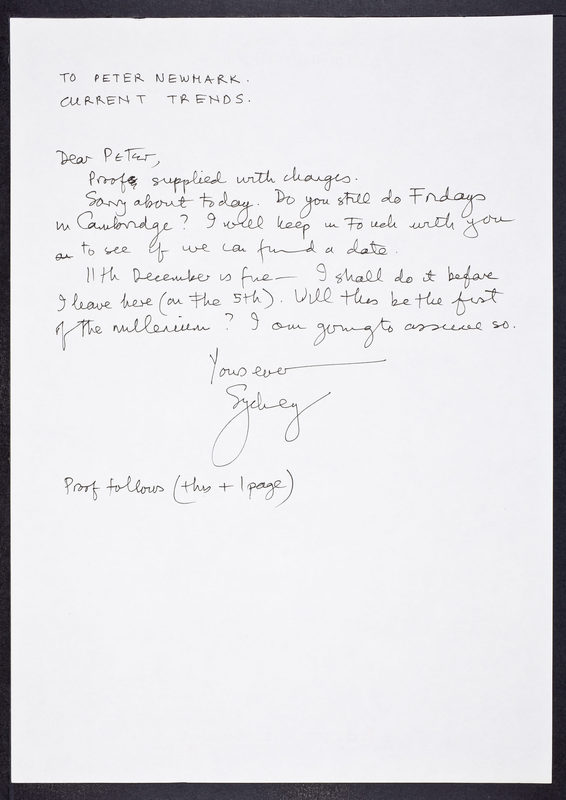 TO PETER NEWMARK.
CURRENT TRENDS.
Dear PETER,
Proofs supplied with changes.
Sorry about today. Do you still do Fridays
in Cambridge? I will keep in touch with you
to see if we can find a date.
11th December is fine — I shall do it before
I leave here (on the 5th). Will this be the first
of the millenium? I am going to assume so.
Yours ever
Sydney
Proof follows (this + 1 page)